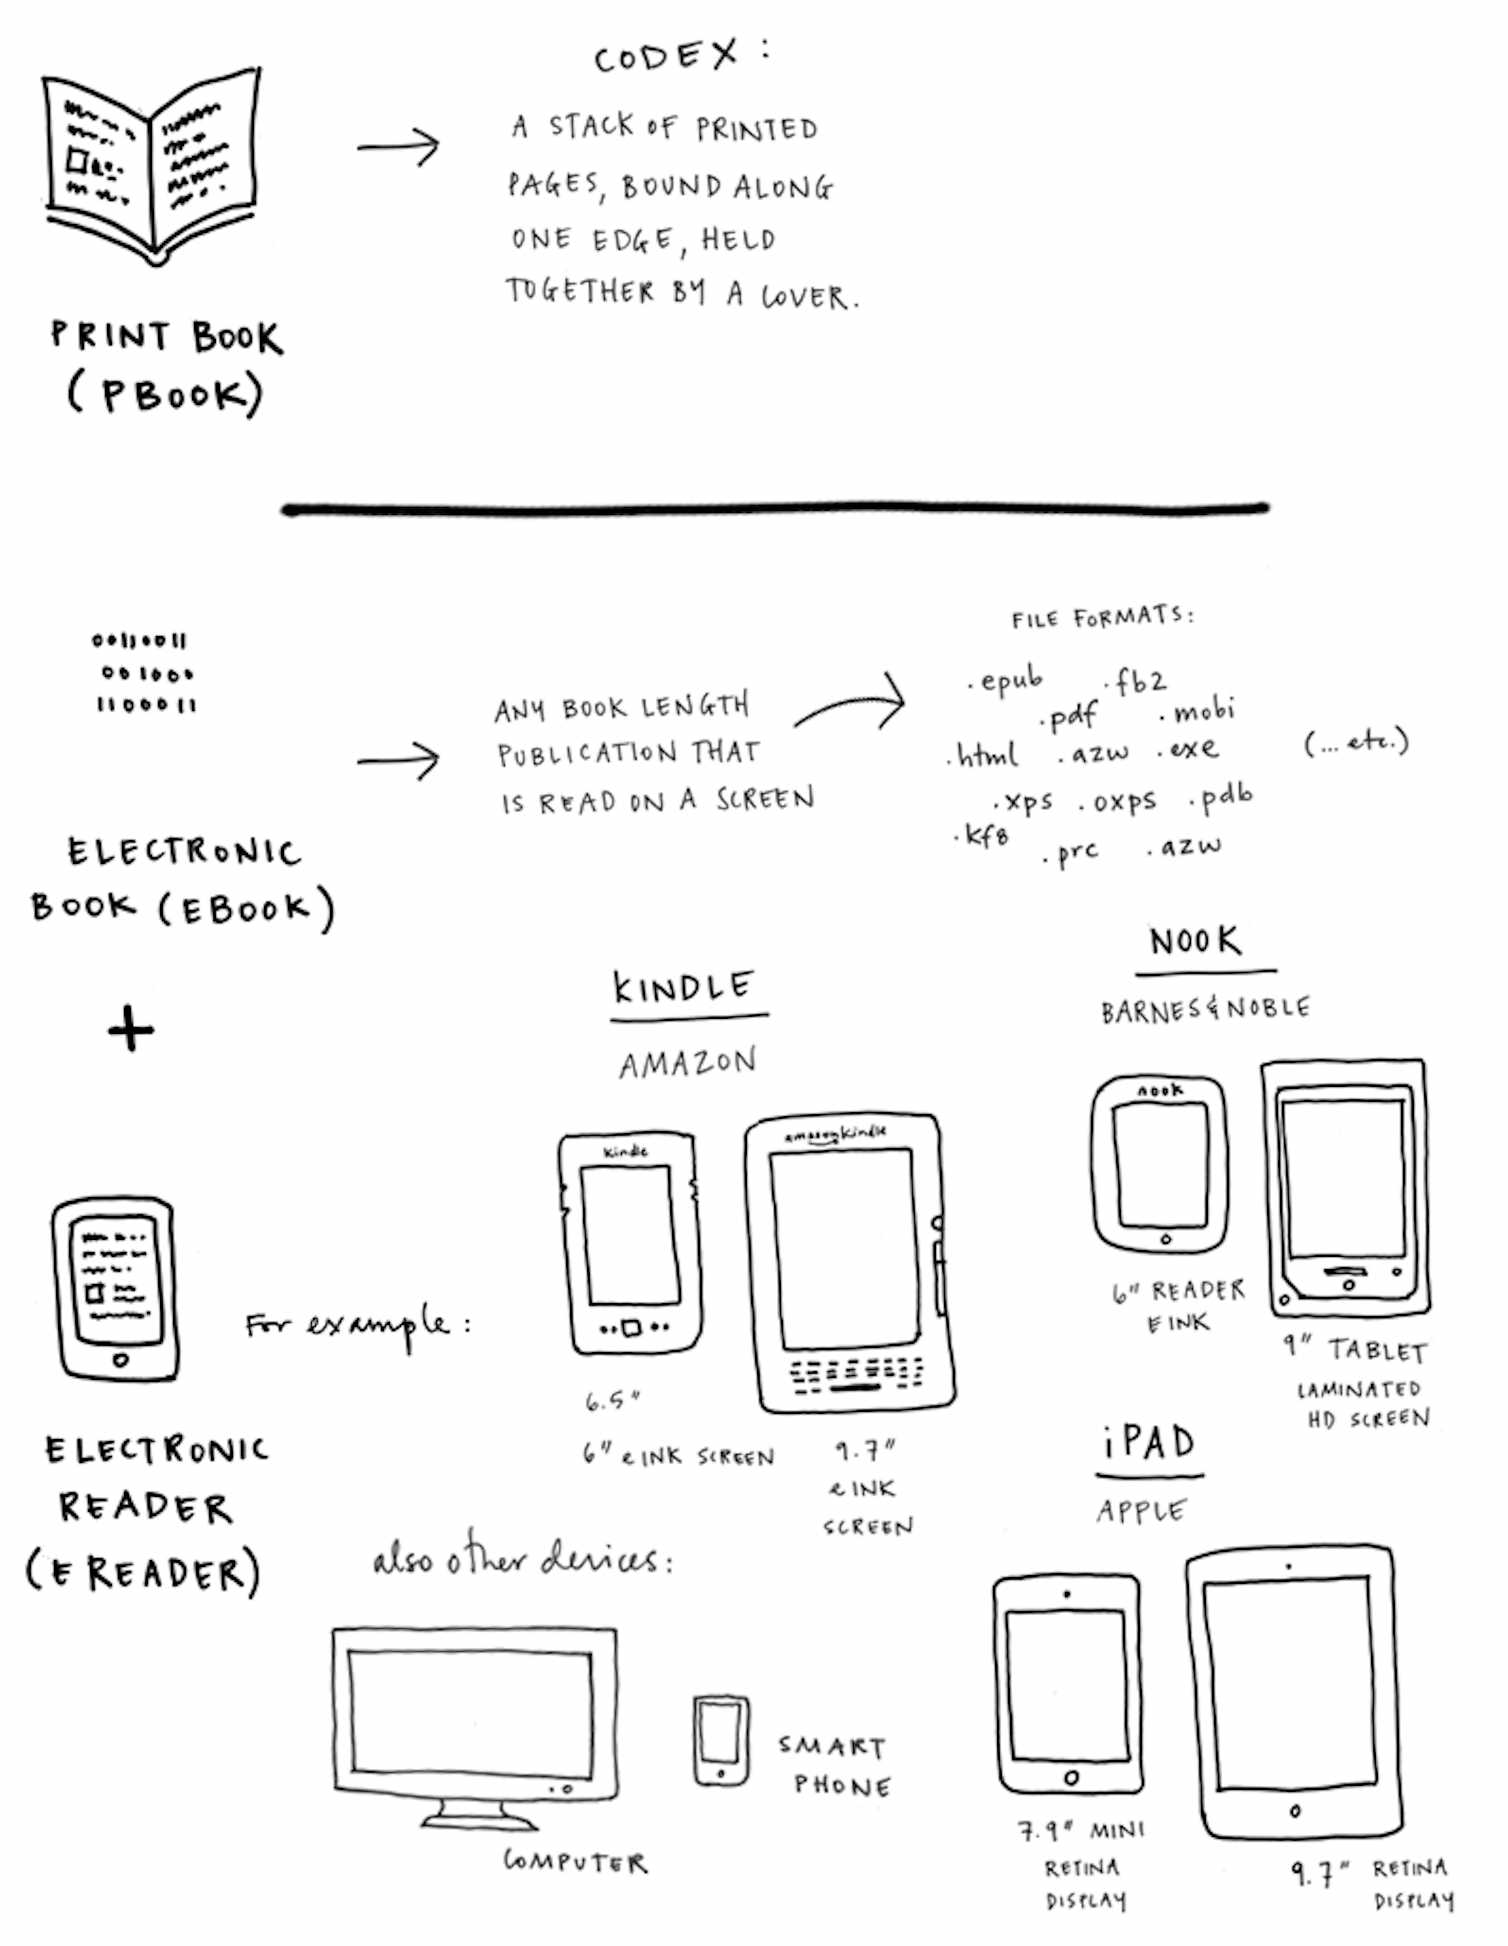 CODEX :
A STACK OF PRINTED
PAGES, BOUND ALONG
ONE EDGE, HELD
TOGETHER BY A COVER.
PRINT BOOK
(PBOOK)
00110011
001000
1100011
ELECTRONIC
BOOK (EBOOK)
ANY BOOK LENGTH
PUBLICATION THAT
IS READ ON A SCREEN
FILE FORMATS:
.epub .fb2
.pdf .mobi
.html .azw .exe (...etc.)
.xps .oxps .pdb
.kf8 .prc .azw
+
ELECTRONIC
READER
(E READER)
For example:
KINDLE
AMAZON
kindle
6.5"
6" e INK SCREEN
amazonkindle
9.7"
e INK
SCREEN
NOOK
BARNES & NOBLE
nook
6" READER
E INK
9" TABLET
LAMINATED
HD SCREEN
iPAD
APPLE
7.9" MINI
RETINA
DISPLAY
9.7" RETINA
DISPLAY
also other devices:
COMPUTER
SMART
PHONE